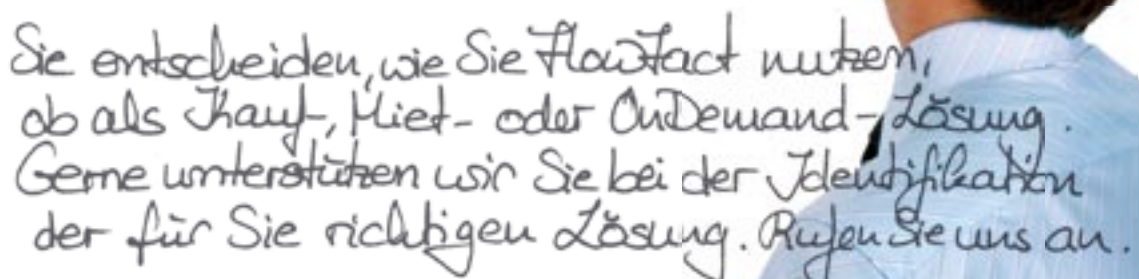 Sie entscheiden, wie Sie FlowFact nutzen,
ob als Kauf-, Miet- oder OnDemand-Lösung.
Gerne unterstützen wir Sie bei der Identifikation
der für Sie richtigen Lösung. Rufen Sie uns an.